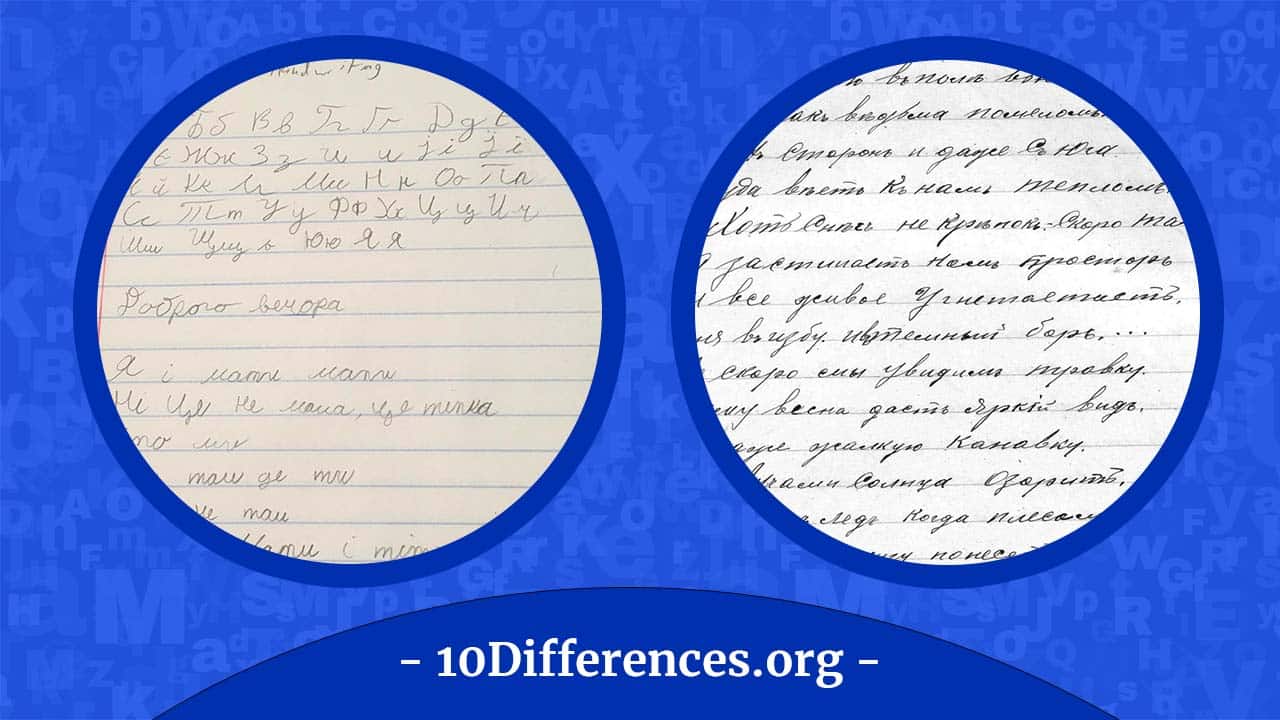 Handwriting
Бб Вв Гг Ґґ Дд Е
Є Жж Зз И и і ї
й Кк Лл Мм Нн Оо Пп
Сс Тт Уу Фф Хх Цц Чч
Шш Щщ ь Юю Яя
Доброго вечора
Я і мати мати
Ні Це не мама, це тітка
то ми
там де ти
не там
Мати і тіт
въ поль
акъ вѣдьма помеломъ
Сторонъ и даже Съ Юга
вѣетъ Къ намъ тепломъ.
Хоть Снѣгъ не Крѣпокъ. Скоро та
застилаетъ намъ просторъ
все живое Угнетаетъ
въ избу. темный боръ....
скоро мы увидимъ травку.
весна дастъ Яркій видъ.
даже жалкую Канавку.
Лучами Солнца Озаритъ.
ледъ Когда плесомъ
понесе
- 10Differences.org -